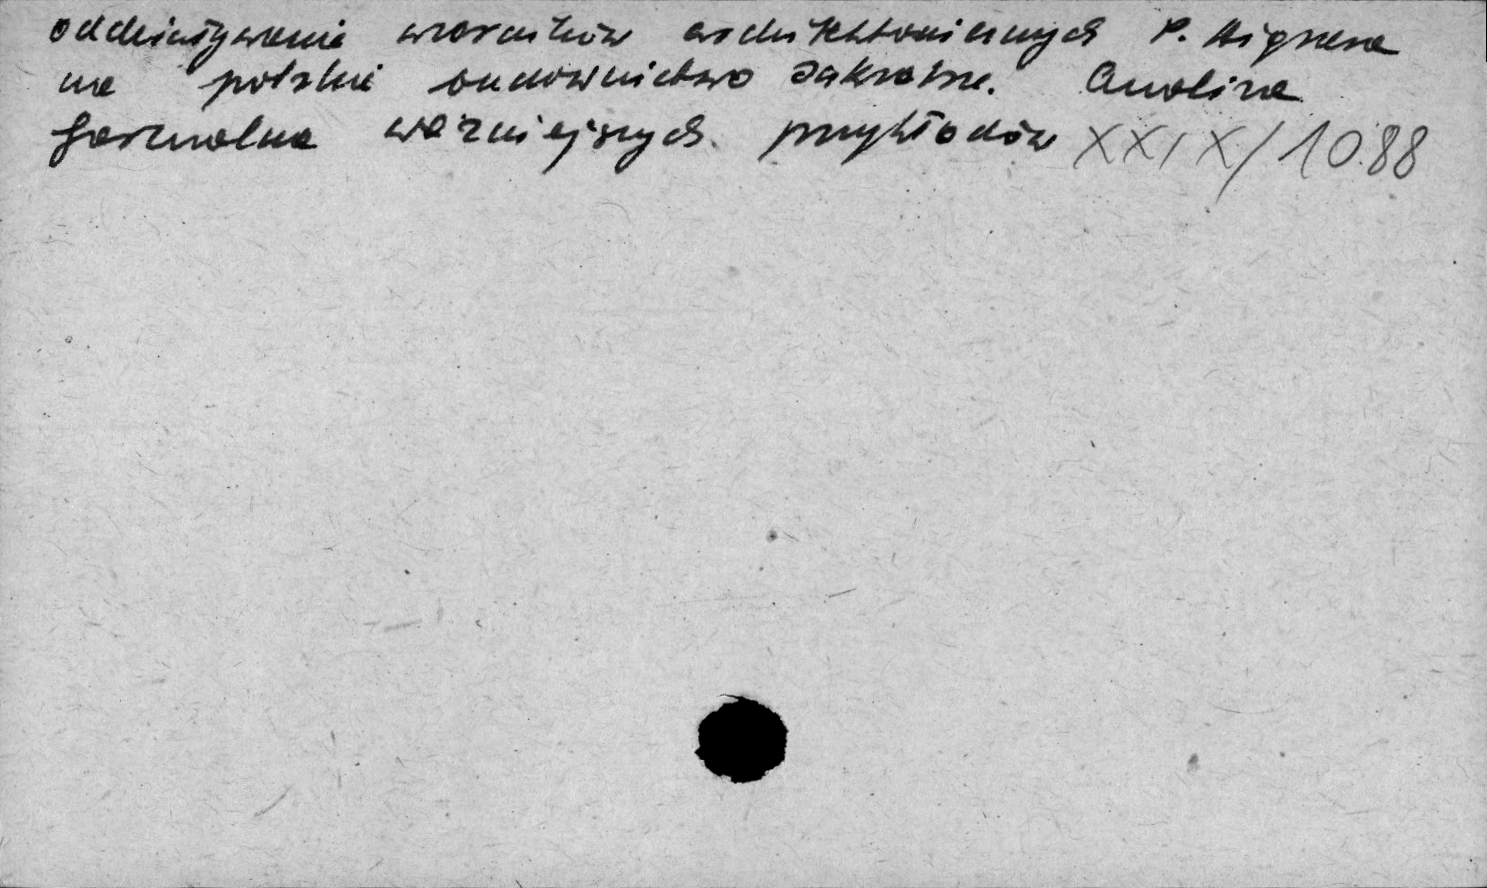 oddziaływanie wzorników architektonicznych P. Aignera
na polskie budownictwo sakralne. Analiza
formalna ważniejszych przykładów XXIX/1088